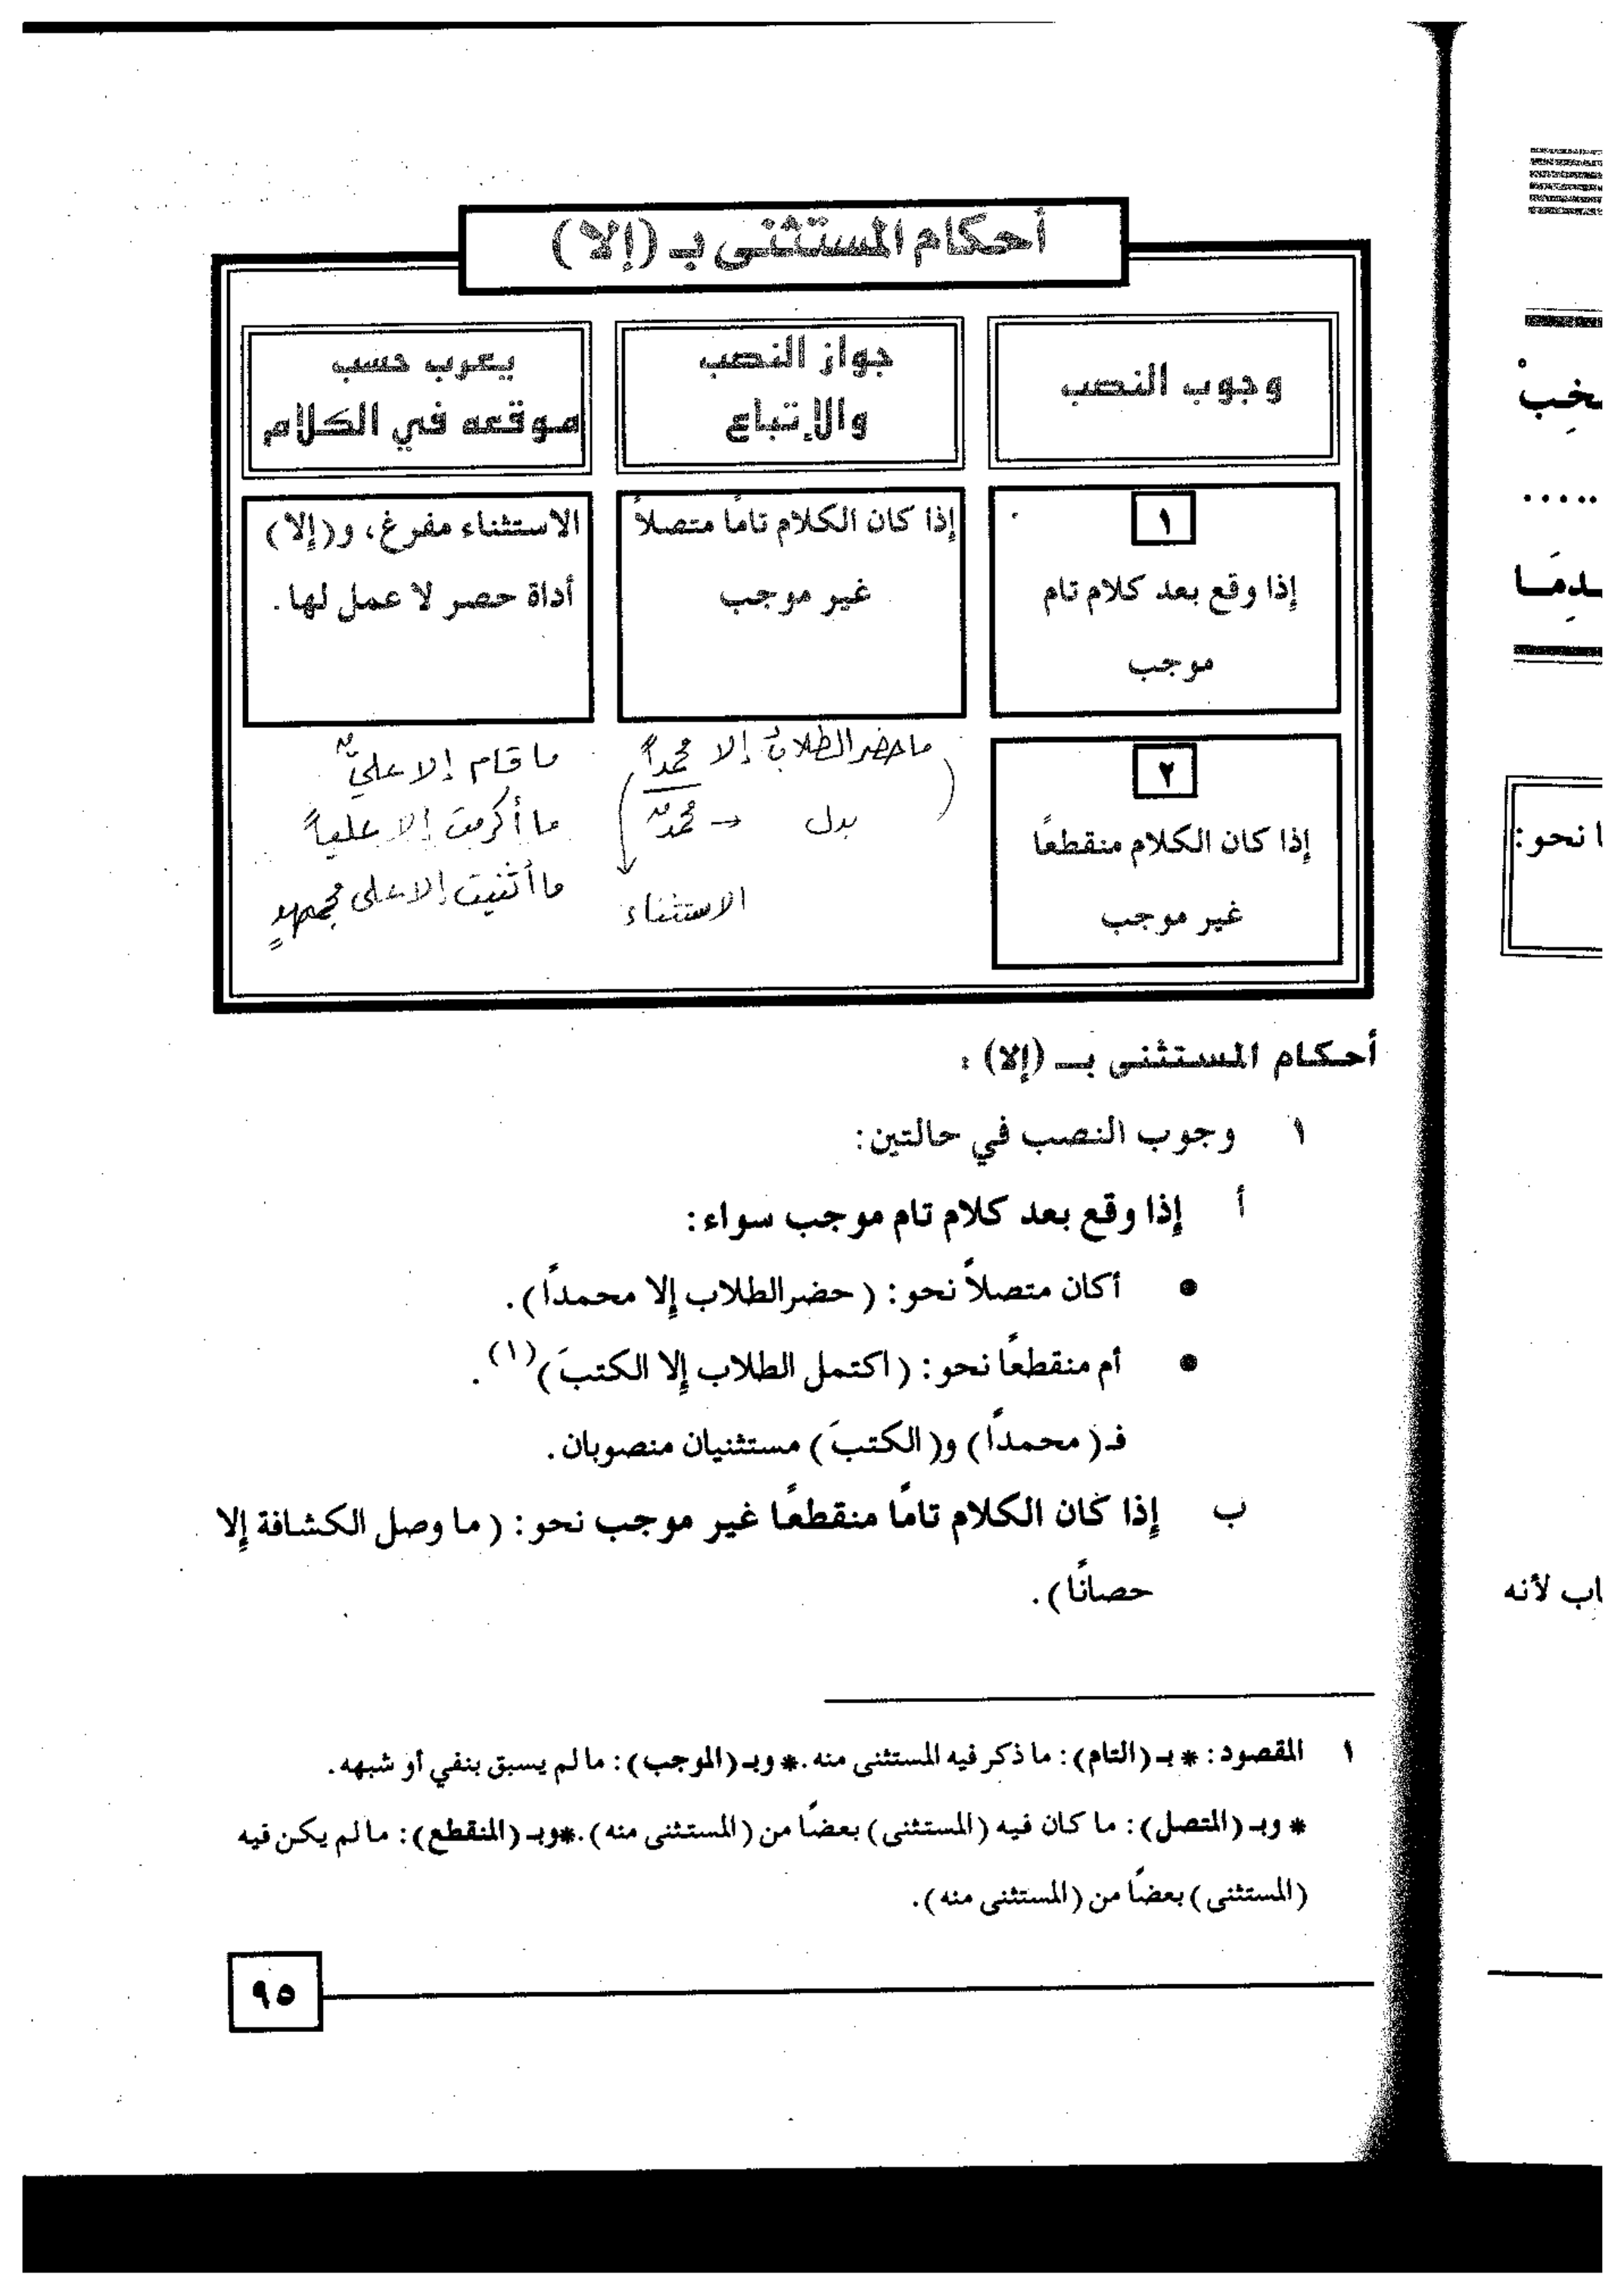 أحكام المستثنى بـ (إلا)
وجوب النصب
جواز النصب
والإتباع
يعرب حسب
موقعه في الكلام
١
إذا وقع بعد كلام تام
موجب
إذا كان الكلام تامًا متصلاً
غير موجب
الاستثناء مفرغ، و(إلا)
أداة حصر لا عمل لها.
٢
إذا كان الكلام منقطعًا
غير موجب
ما حضر الطلابُ إلا محمداً
بدل ← محمدٌ
الاستثناء
ما قام إلا عليٌّ
ما أكرمت إلا علياً
ما أثنيت إلا على مجتهدٍ
أحكام المستثنى بـ (إلا) :
١ وجوب النصب في حالتين:
أ إذا وقع بعد كلام تام موجب سواء:
● أكان متصلاً نحو: (حضر الطلاب إلا محمدًا).
● أم منقطعًا نحو: (اكتمل الطلاب إلا الكتبَ)(١).
فـ(محمدًا) و(الكتبَ) مستثنيان منصوبان.
ب إذا كان الكلام تامًا منقطعًا غير موجب نحو: (ما وصل الكشافة إلا
حصانًا).
١ المقصود: * بـ (التام): ما ذكر فيه المستثنى منه. * وبـ (الموجب): ما لم يسبق بنفي أو شبهه.
* وبـ (المتصل): ما كان فيه (المستثنى) بعضًا من (المستثنى منه). *وبـ (المنقطع): ما لم يكن فيه
(المستثنى) بعضًا من (المستثنى منه).
٩٥
ا نحو:
اب لأنه